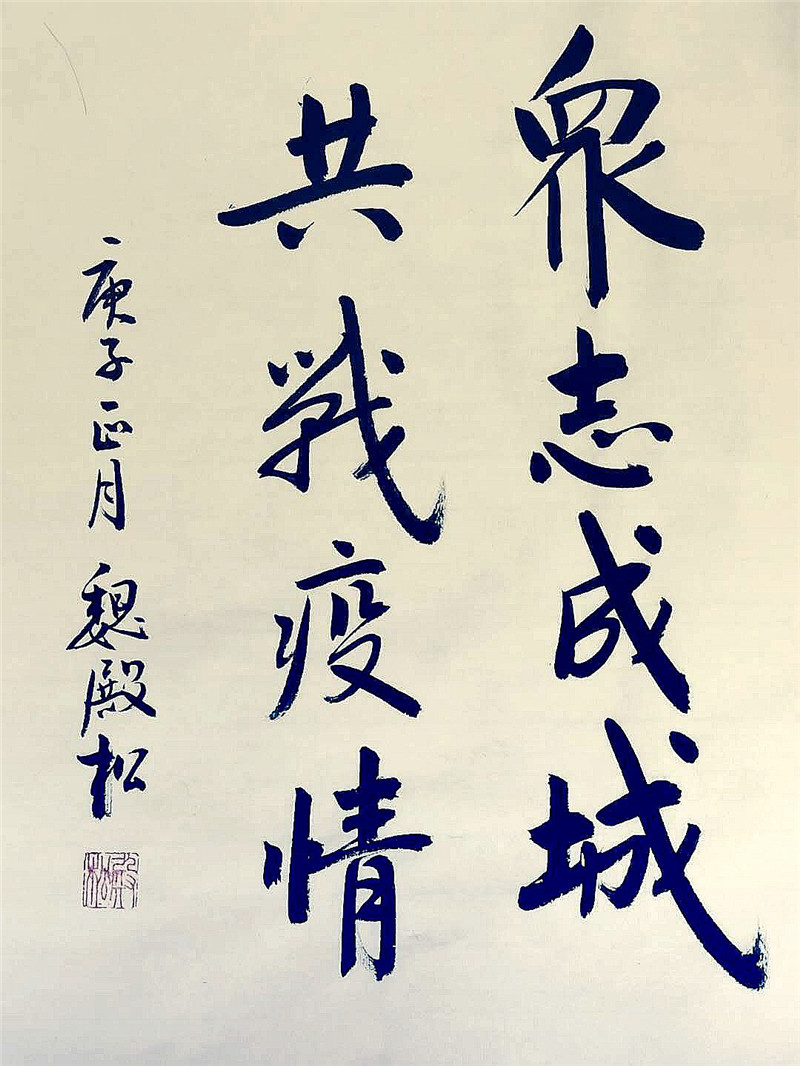 眾志成城
共戰疫情
庚子正月 魏殿松
殿松